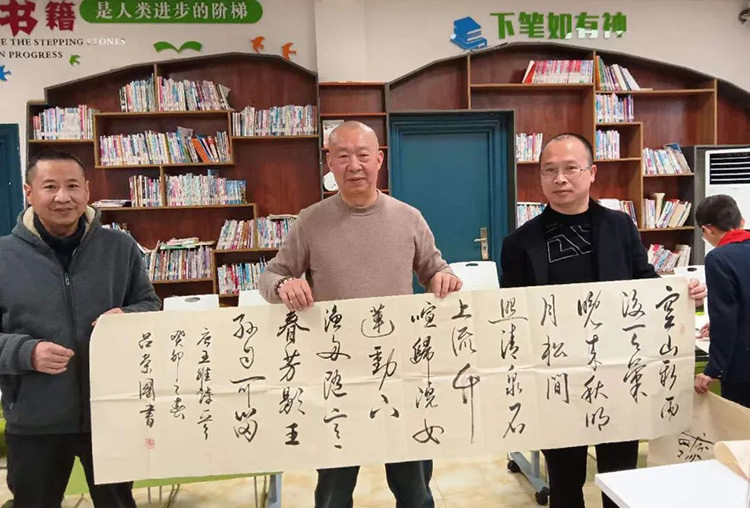 书籍
是人类进步的阶梯
THE STEPPING STONES
PROGRESS
下笔如有神
空山新雨
後天氣
晚来秋明
月松間
照清泉石
上流竹
喧歸浣女
蓮動下
漁舟隨意
春芳歇王
孫自可留
唐王維詩一首
癸卯之春
呂荣國書